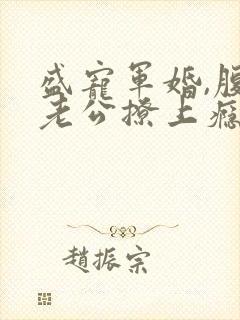 盛寵軍婚,腹
老公撩上癮
趙振宗